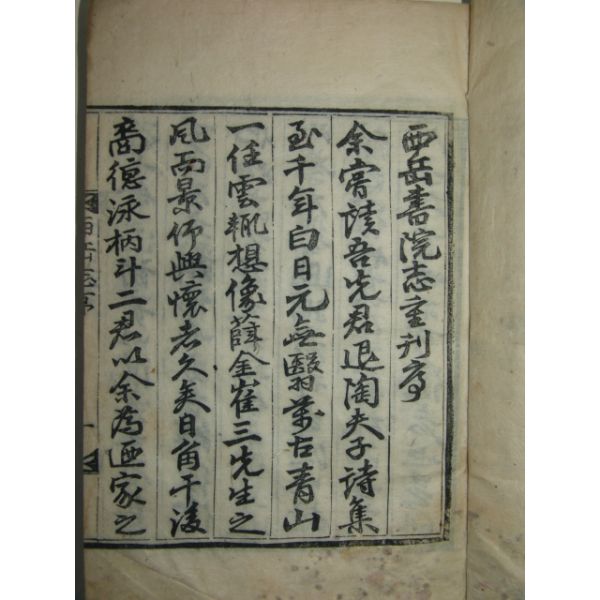 西岳書院志重刊序
余嘗讀吾先君退陶夫子詩集
至千年白日元無翳萬古青山
一任雲輒想像薛金崔三先生之
風而景仰興懷者久矣日角干淩
裔德泳柄斗二君以余為逥家之
西岳志序
一